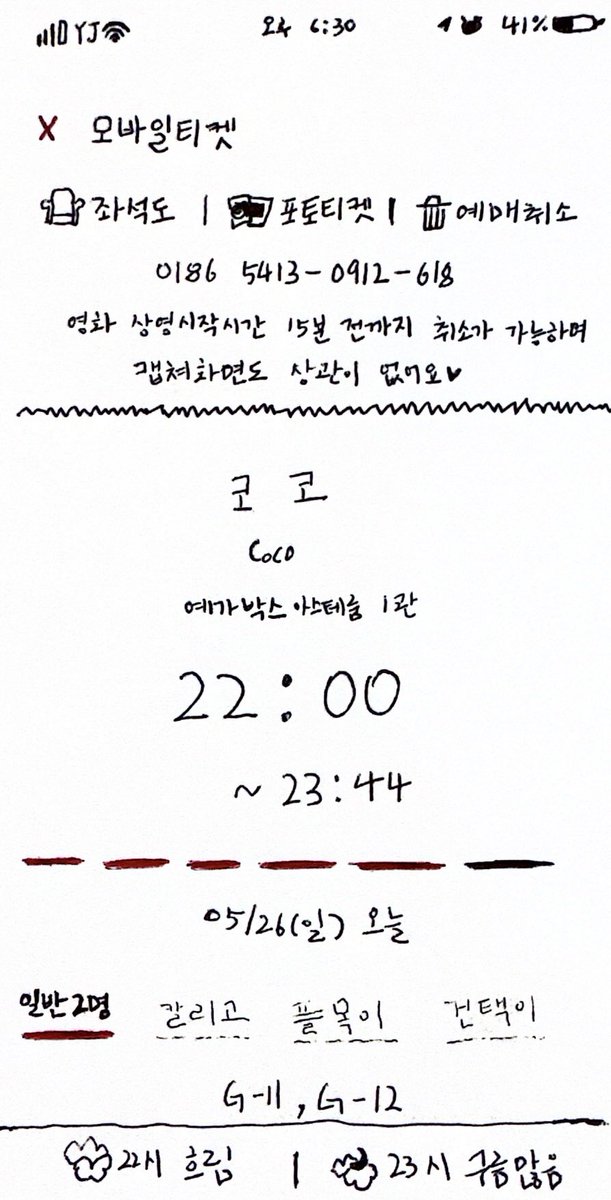 YJ 오후 6:30 41%
X 모바일티켓
좌석도 | 포토티켓 | 예매취소
0186 5413-0912-618
영화 상영시작시간 15분 전까지 취소가 가능하며
캡쳐화면도 상관이 없어요♥
코코
Coco
예가박스 아스테룸 1관
22:00
~ 23:44
05/26(일) 오늘
일반2명 칼리고 플목이 건택이
G-11, G-12
22시 흐림 | 23시 구름많음